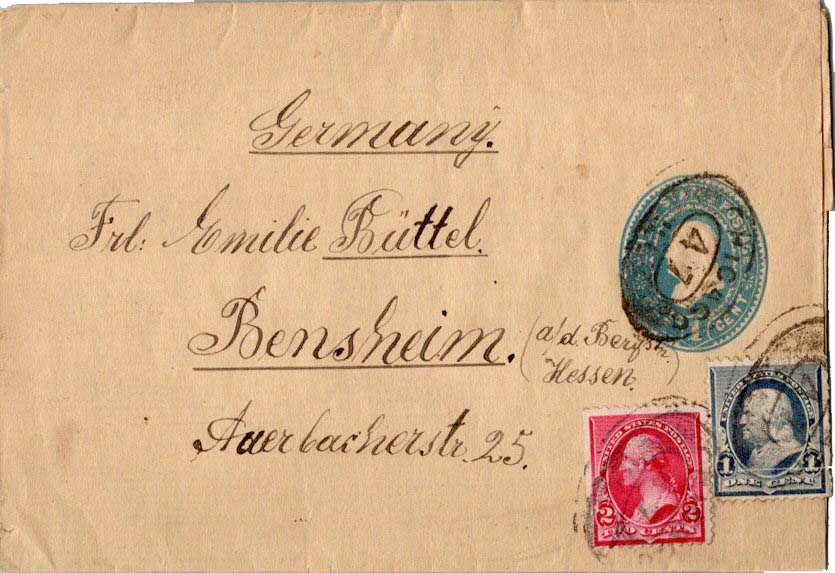 Germany.
Frl: Emilie Büttel.
Bensheim.
(a/d. Bergstr.
Hessen.)
Auerbacherstr. 25.
CHICAGO
47
1 CENT
UNITED STATES POSTAGE
2 2
TWO CENTS
UNITED STATES POSTAGE
1 1
ONE CENT